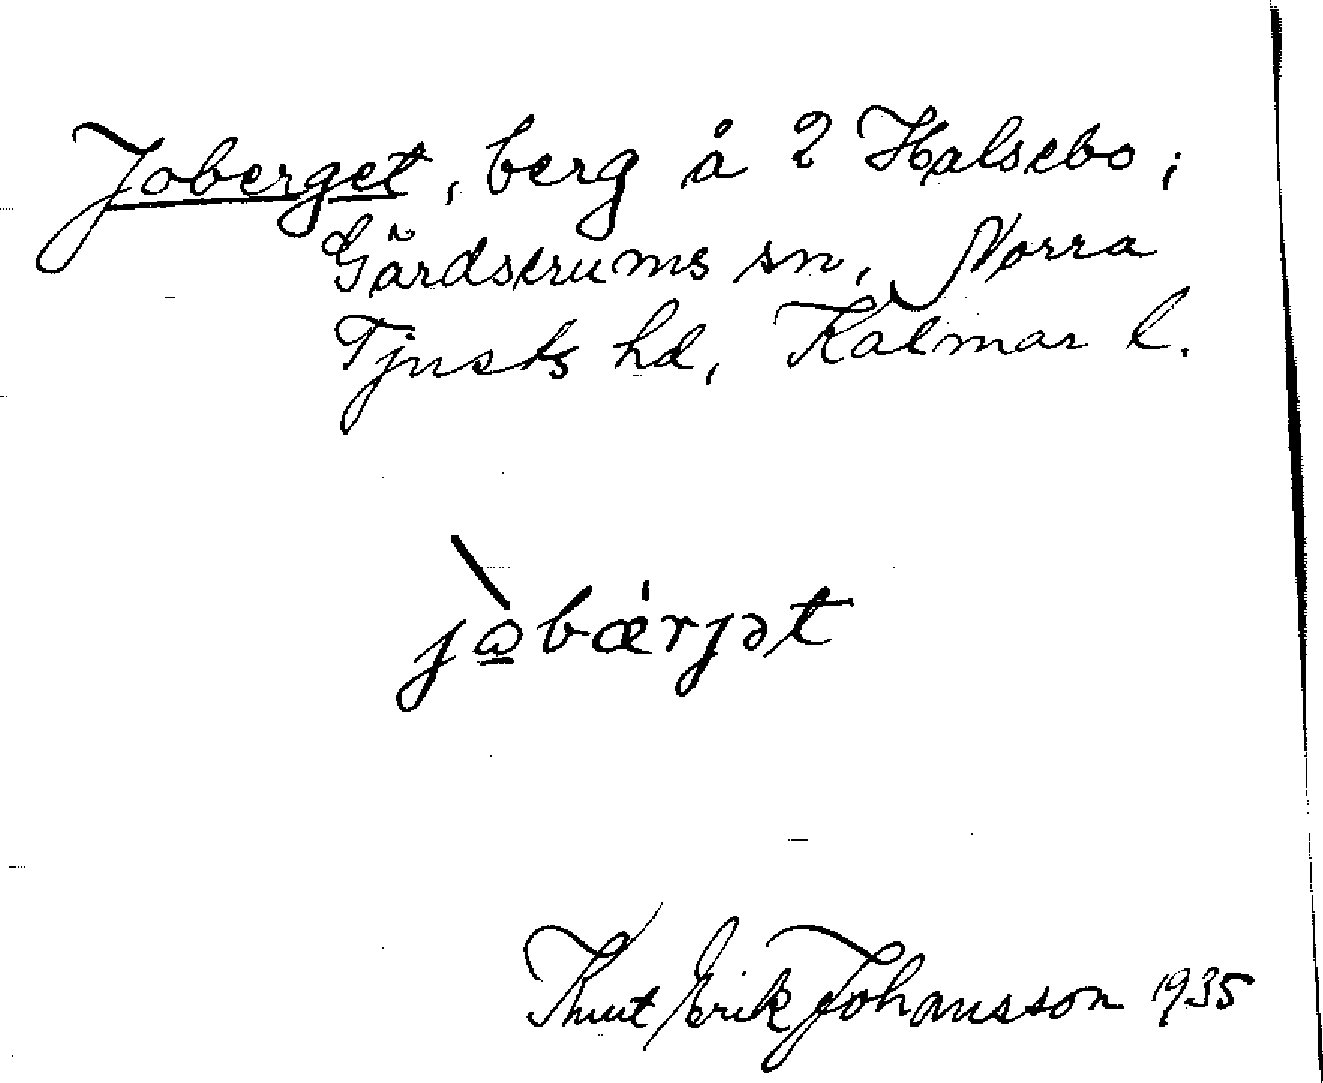 Joberget, berg å 2 Halsebo,
Gärdserums sn, Norra
Tjusts hd, Kalmar l.
Knut Erik Johansson 1935